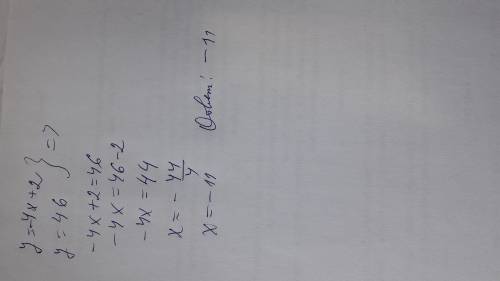 y = -4x+2 } =>
y = 46
-4x+2=46
-4x=46-2
-4x=44
x = - 44/4
x = -11
Ответ: -11